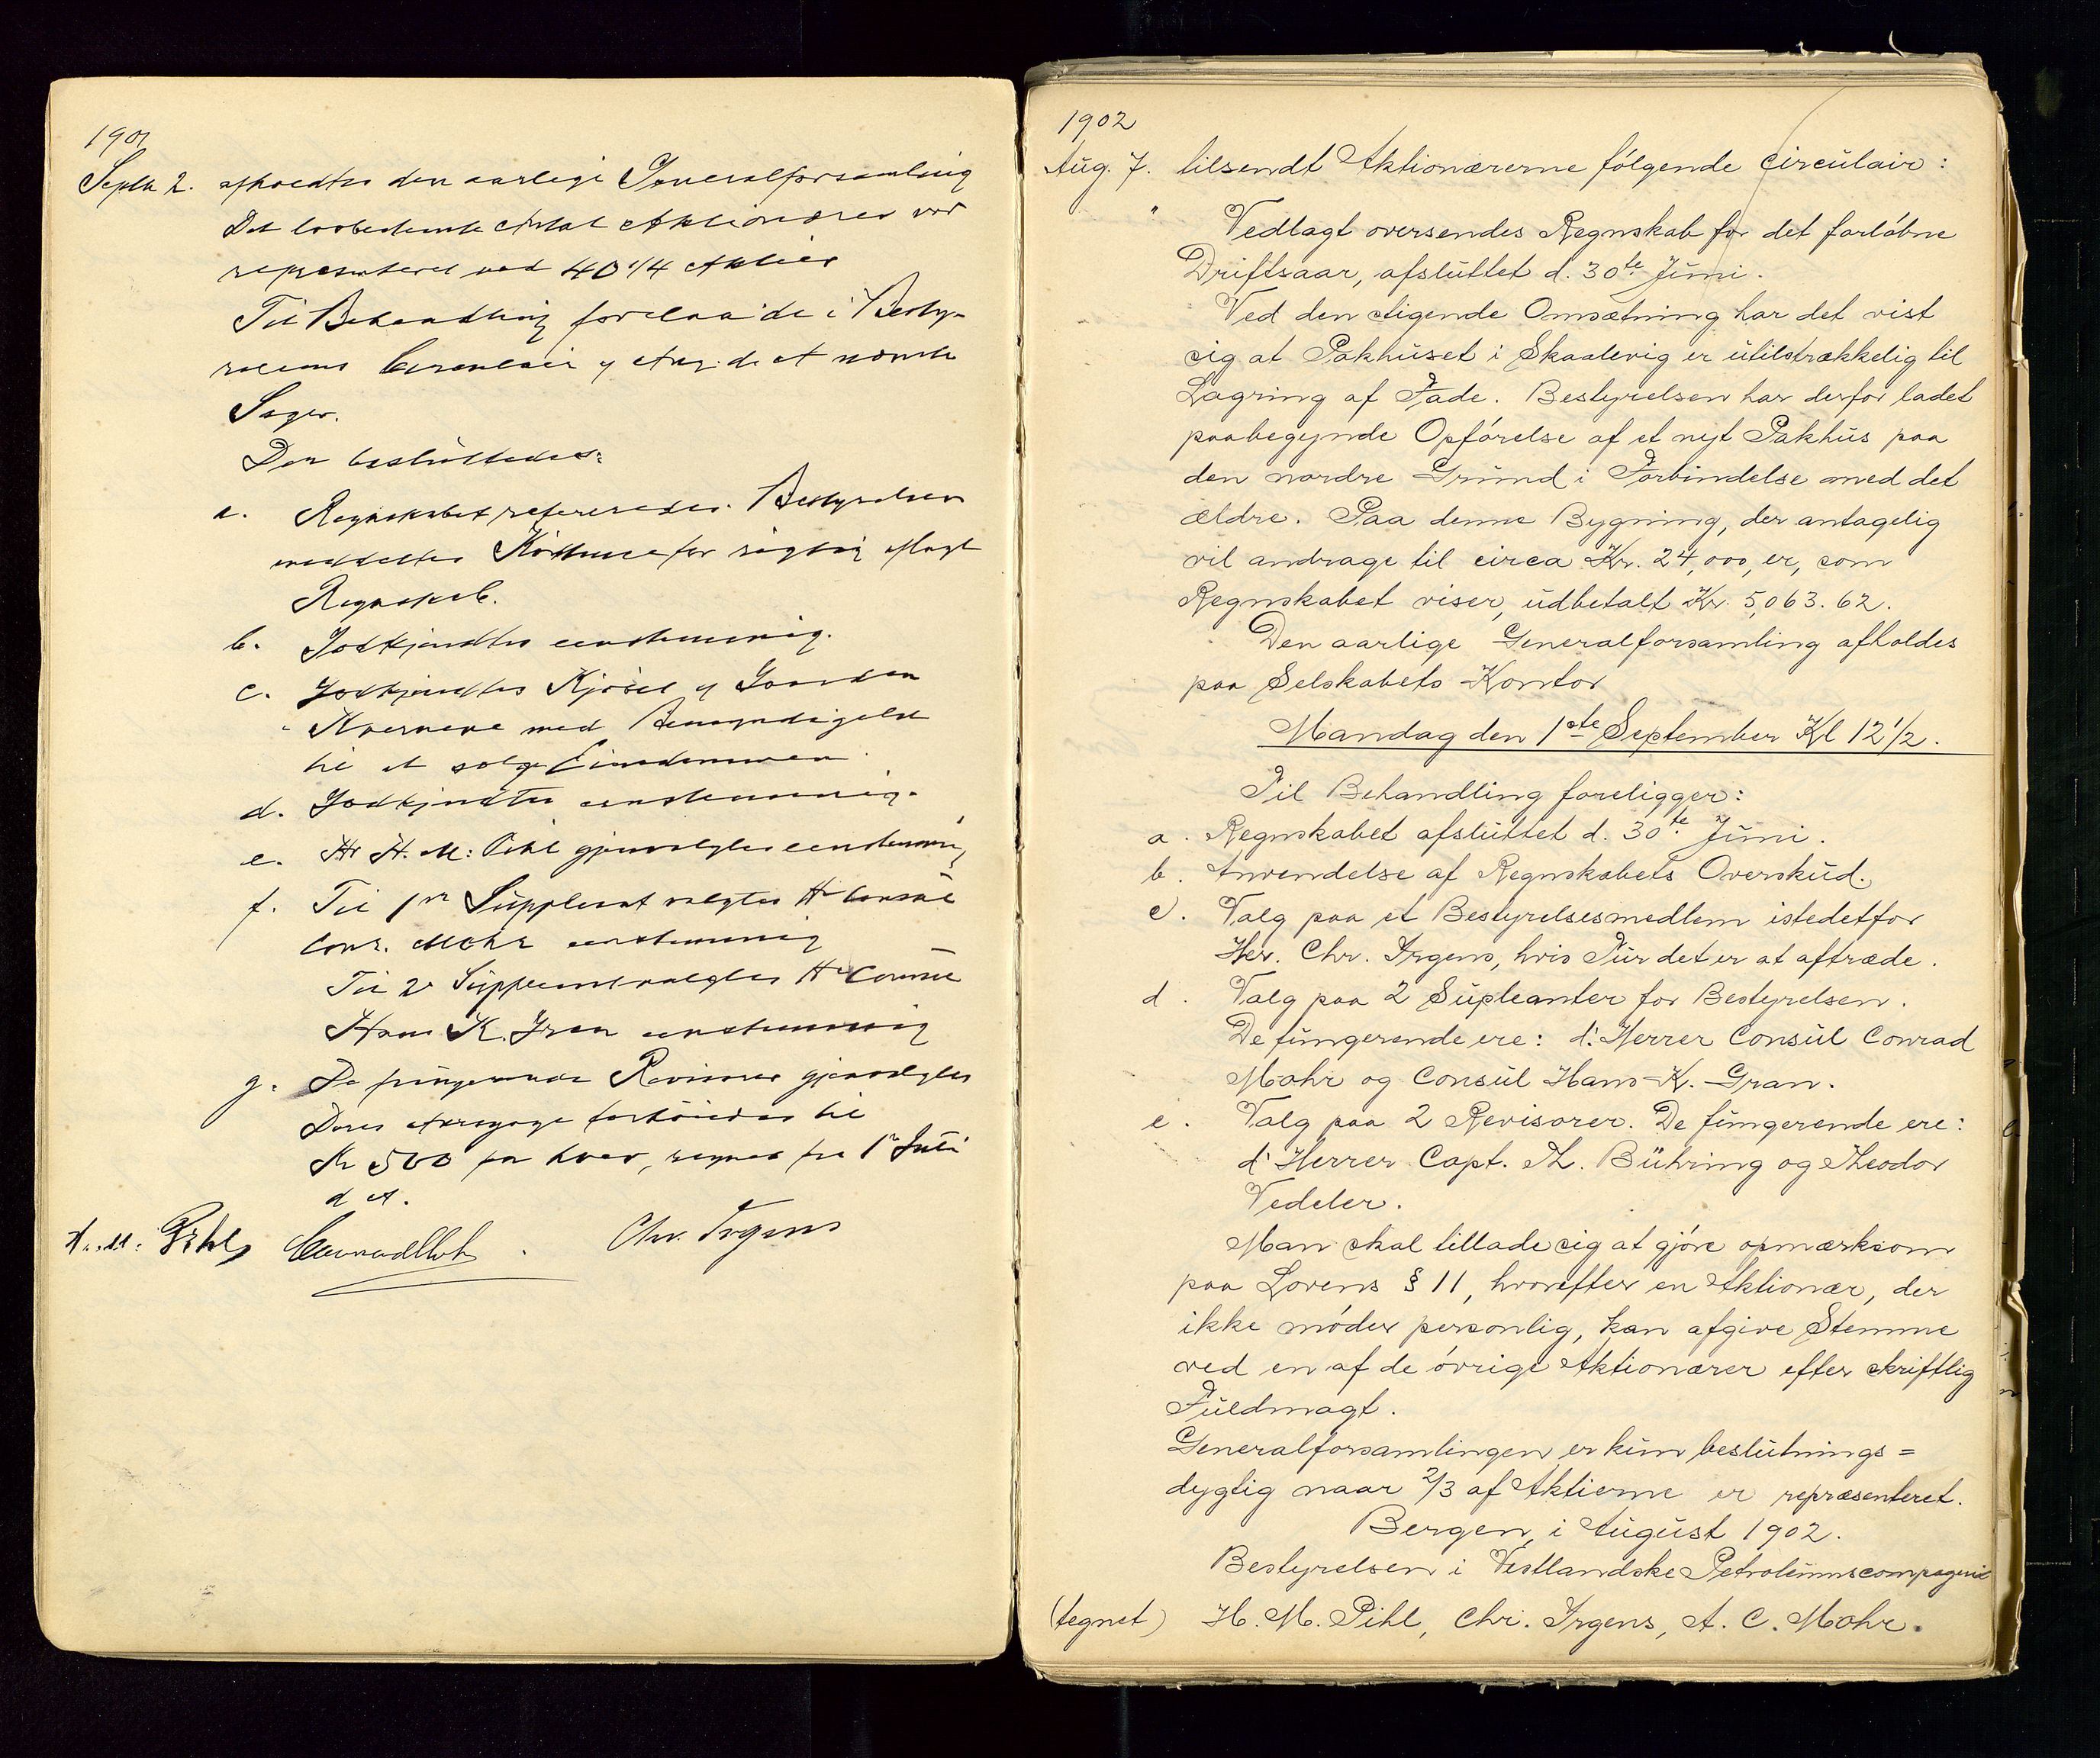 1901
Septb 2. afholdtes den aarlige Generalforsamling
Det lovbestemte Antal Aktionærer var
repræsenteret ved 40 1/4 Aktier
Til Behandling forelaa de i Besty-
relsens Circulair af Aug. d. A nævnte
Sager.
Der besluttedes:
a. Regnskabet refereredes. Bestyrelsen
meddeltes Kvittance for rigtig aflagt
Regnskab.
b. Godkjendtes eenstemmig.
c. Godkjendtes Kjöbet af
med Bemyndigelse
til at sælge Eiendommen
d. Godkjendtes eenstemmig.
e. Hr H. M. Pihl gjenvalgtes eenstemmig
f. Til 1ste Suppleant valgtes Hr Consul
Conr. Mohr eenstemmig
Til 2 Suppleant valgtes Hr Consul
Hans K. Gran eenstemmig
g. De fungerende Revisorer gjenvalgtes
Deres forhöiedes til
Kr 500 for hver, regnet fra 1 Juli
d A.
H. M. Pihl Conrad Mohr. Chr. Irgens
1902
Aug. 7. tilsendt Aktionærerne følgende circulair:
" Vedlagt oversendes Regnskab for det forløbne
Driftsaar, afsluttet d. 30te Juni.
Ved den stigende Omsætning har det vist
sig at Pakhuset i Skaalevig er utilstrækkelig til
Lagring af Fade. Bestyrelsen har derfor ladet
paabegynde Opførelse af et nyt Pakhus paa
den nordre Grund i Forbindelse med det
ældre. Paa denne Bygning, der antagelig
vil andrage til circa Kr. 24,000, er, som
Regnskabet viser, udbetalt Kr. 5,063.62.
Den aarlige Generalforsamling afholdes
paa Selskabets Kontor
Mandag den 1ste September Kl 12 1/2.
Til Behandling foreligger:
a. Regnskabet afsluttet d. 30te Juni.
b. Anvendelse af Regnskabets Overskud.
c. Valg paa et Bestyrelsesmedlem istedetfor
Her. Chr. Irgens, hvis Tur det er at aftræde.
d. Valg paa 2 Supleanter for Bestyrelsen.
De fungerende ere: d'Herrer Consul Conrad
Mohr og Consul Hans K. Gran.
e. Valg paa 2 Revisorer. De fungerende ere:
d'Herrer Capt. Th. Bühring og Theodor
Vedeler.
Man skal tillade sig at gjøre opmærksom
paa Lovens § 11, hvorefter en Aktionær, der
ikke møder personlig, kan afgive Stemme
ved en af de øvrige Aktionærer efter skriftlig
Fuldmagt.
Generalforsamlingen er kun beslutnings=
dygtig naar 2/3 af Aktierne er repræsenteret.
Bergen, i August 1902.
Bestyrelsen i Vestlandske Petroleumscompagni
(tegnet) H. M. Pihl, Chr. Irgens, A. C. Mohr.